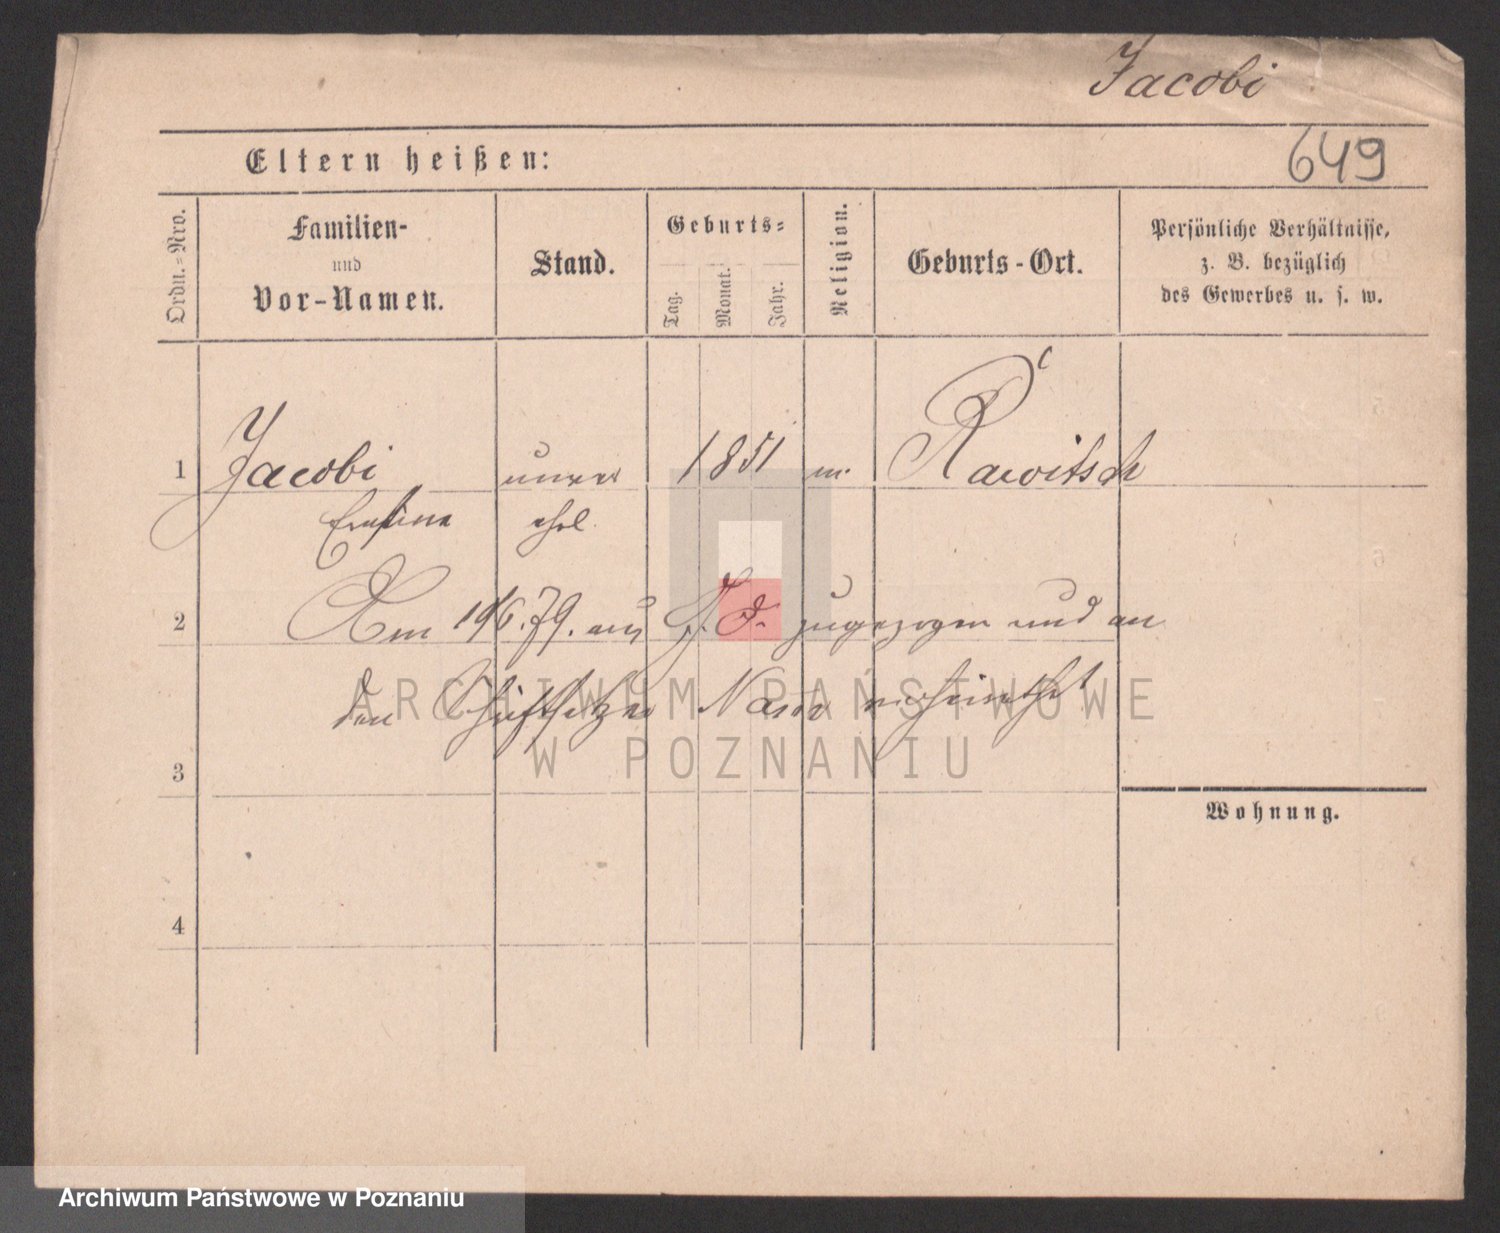 Jacobi
649
Eltern heißen:
Ordn.-Nro.
Familien-
und
Vor-Namen.
Stand.
Geburts-
Tag.
Monat.
Jahr.
Religion.
Geburts-Ort.
Persönliche Verhältnisse,
z. B. bezüglich
des Gewerbes u. s. w.
1 Jacobi unver 1851 m. Rawitsch
ehl.
2 Am 19/6.79. aus zugezogen und an
den Schriftsetzer verheirathet
ARCHIWUM PAŃSTWOWE
W POZNANIU
3
Wohnung.
4
Archiwum Państwowe w Poznaniu